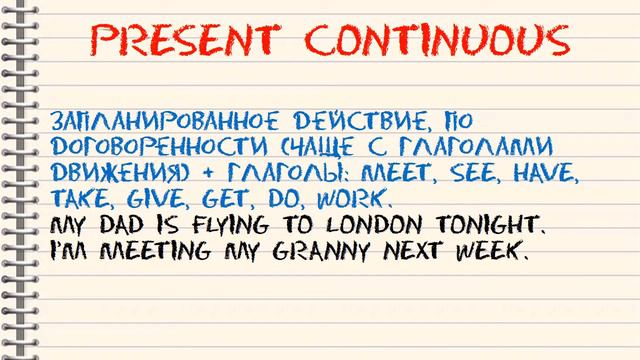 PRESENT CONTINUOUS
ЗАПЛАНИРОВАННОЕ ДЕЙСТВИЕ, ПО
ДОГОВОРЕННОСТИ (ЧАЩЕ С ГЛАГОЛАМИ
ДВИЖЕНИЯ) + ГЛАГОЛЫ: MEET, SEE, HAVE,
TAKE, GIVE, GET, DO, WORK.
MY DAD IS FLYING TO LONDON TONIGHT.
I'M MEETING MY GRANNY NEXT WEEK.